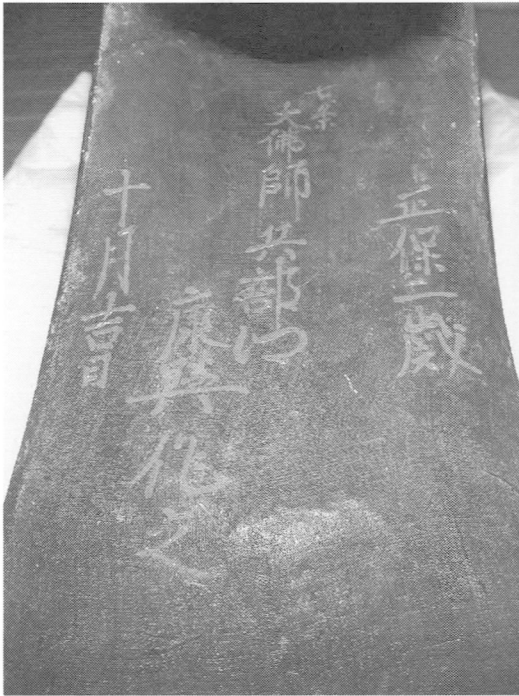 正保二歳
七条
大佛師兵部
康與作之
十月吉日